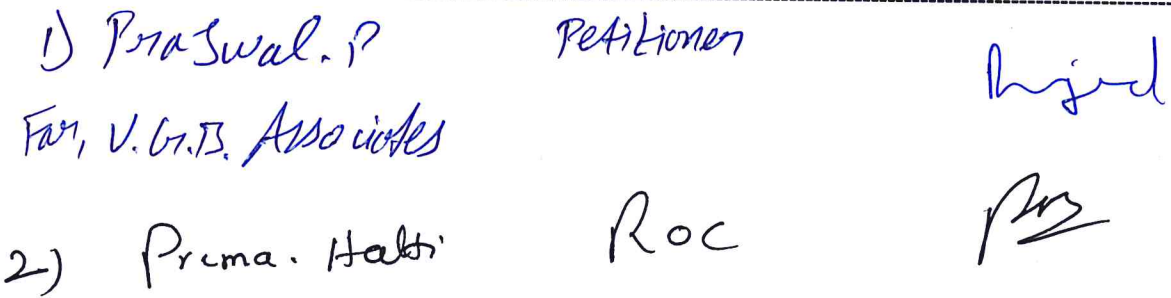 1) Prajwal. P Petitioner
For, V.G.B. Associates
2) Prema. Hatti ROC